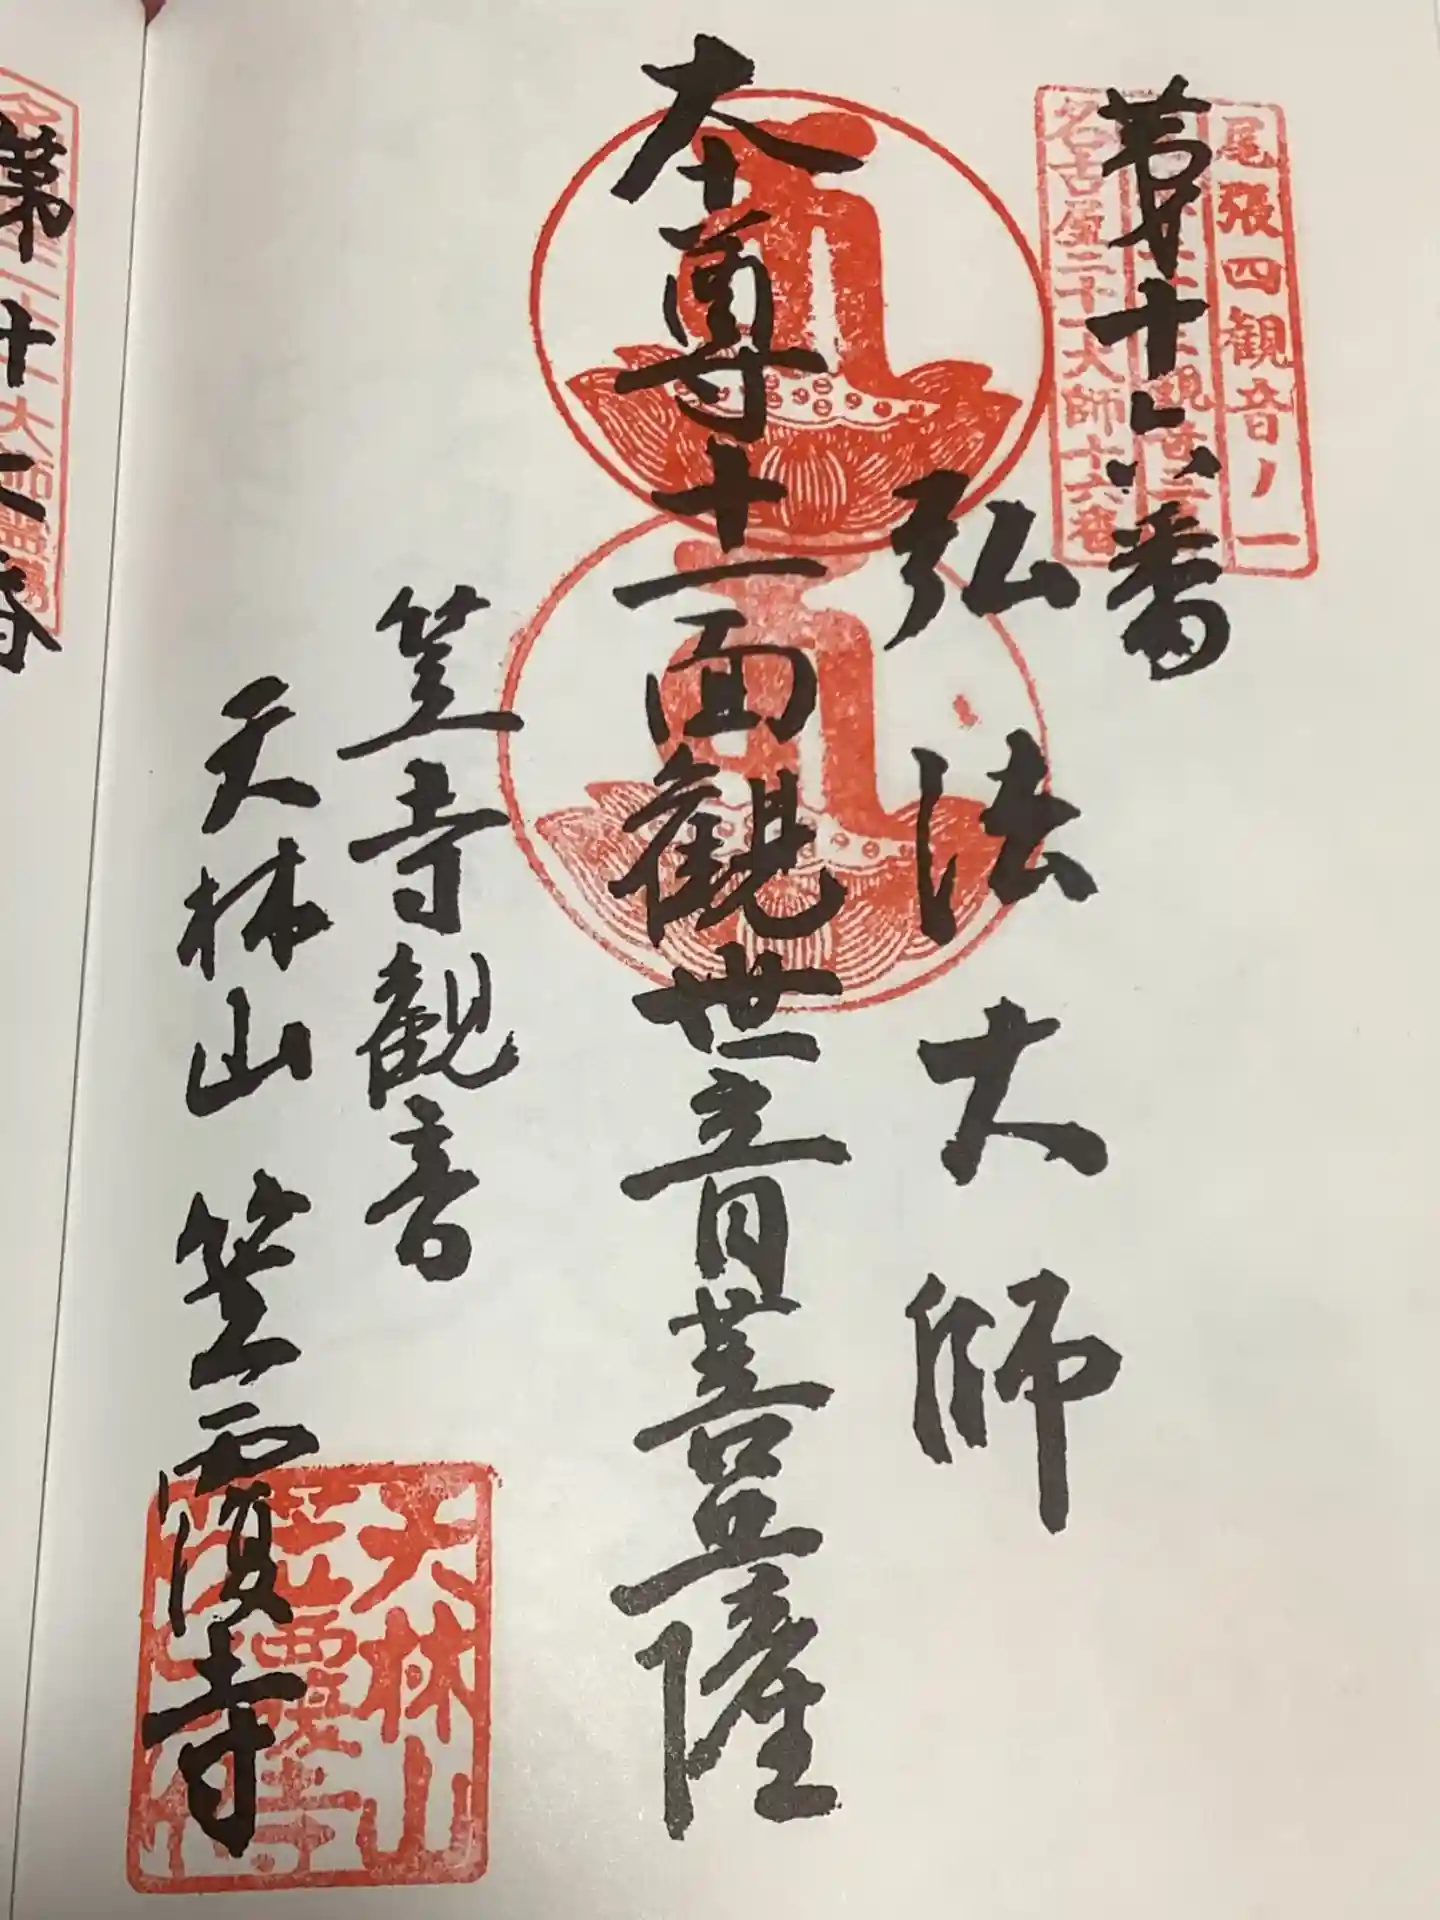 尾張四観音ノ一
名古屋二十一大師十六番
第十六番
弘法大師
本尊十一面観世音菩薩
笠寺観音
天林山 笠覆寺
天林山
第十二番